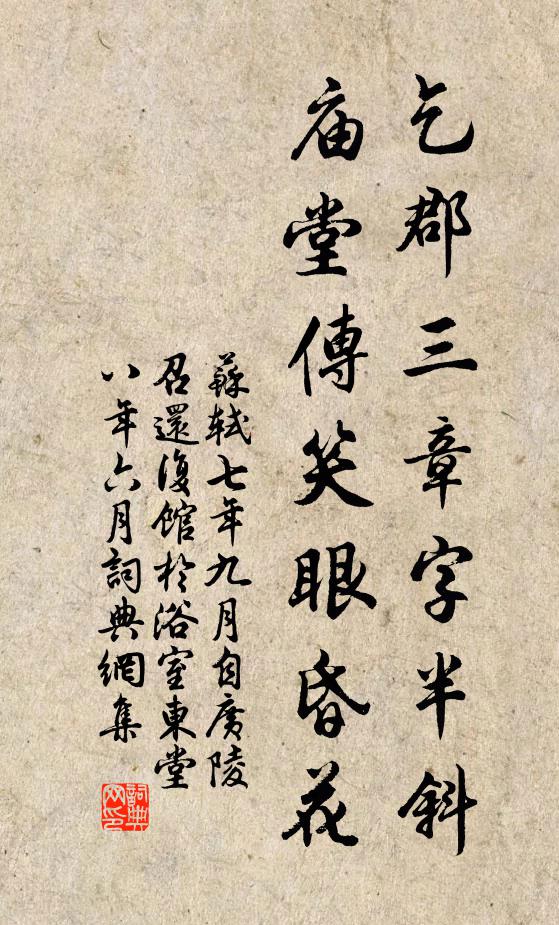 乞郡三章字半斜
庙堂傳笑眼昏花
蘇軾七年九月自廣陵
召還復館於浴室東堂
八年六月詞典網集
詞典
网印